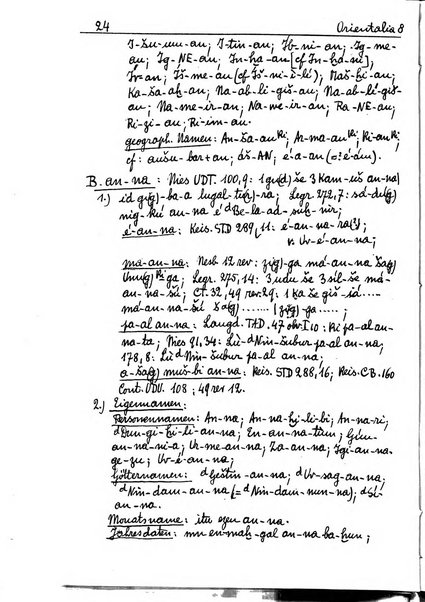 24 Orientalia 8
I-šu-um-an; I-tin-an; Ib-ni-an; Ig-me-
an; Ig-NE-an; In-ha-an [cf In-ha-ni];
Ir-an; Iš-me-an [cf Iš-ni-i-lí]; Maš-hi-an;
Ka-ša-ah-an; Na-ab-li-giš-an; Na-ab-lí-giš-
an; Na-me-ir-an; Na-we-ir-an; Ra-NE-an;
Ri-zi-an; Ri-im-an.
geograph. Namen: An-ša-an ki; An-ma-an ki; Ki-an ki;
cf: aušu-bar+an; áš-AN; é-a-an (=? é-ám).
B. an-na: Nies UDT. 100,9: 1 gu(d) še 3 Kam-uš an-na)
1.) id g(g)-ba-a lugal-t(g)-ra; Legr. 272,7: sá-du(g)
nig-kú an-na é dBe-la-ad-sub-nir;
é-an-na: Keis. STD 289, 11: é-an-na-ra(?);
n. Ur-é-an-na;
má-an-na: Nesb 12 rev: g(g)-ga má-an-na šag)
Unu(g) ki ga; Legr. 275,14: 3 udu še 3 sil-še má-
an-na-šú; CT. 32, 49 rev. 29: 1 ka še giš-iá....
má-an-na-šú šag) ....... [g(g)-ga ....;
pa-al an-na: Langd. TAD. 47 obv. I 10: Ki pa-al an-
na-ta; Nies 91,34: Lù dNin-šubur pa-al an-na;
178,8: Lù dNin-šubur pa-al an-na;
a-šag) muš-bi an-na: Keis. STD 288,16; Keis. CB. 160
Cont. UDU. 108; 49 rev 12.
2.) Eigennamen:
Personennamen: An-na; An-na-hi-li-bi; An-na-ri;
dDun-gi-hi-li-an-na; En-an-na-tum; Gìn-
an-na-ni-a; Ur-me-an-na; Za-an-na; Igi-an-na-
ge-zu; Ur-é-an-na;
Götternamen: dGeštin-an-na; dUr-sag-an-na;
dNin-dam-an-na (= dNin-dam-nun-na); dSi-
an-na.
Monatsname: itu ezen an-na.
Jahresdaten: mu en-mah-gal an-na ba-hun;